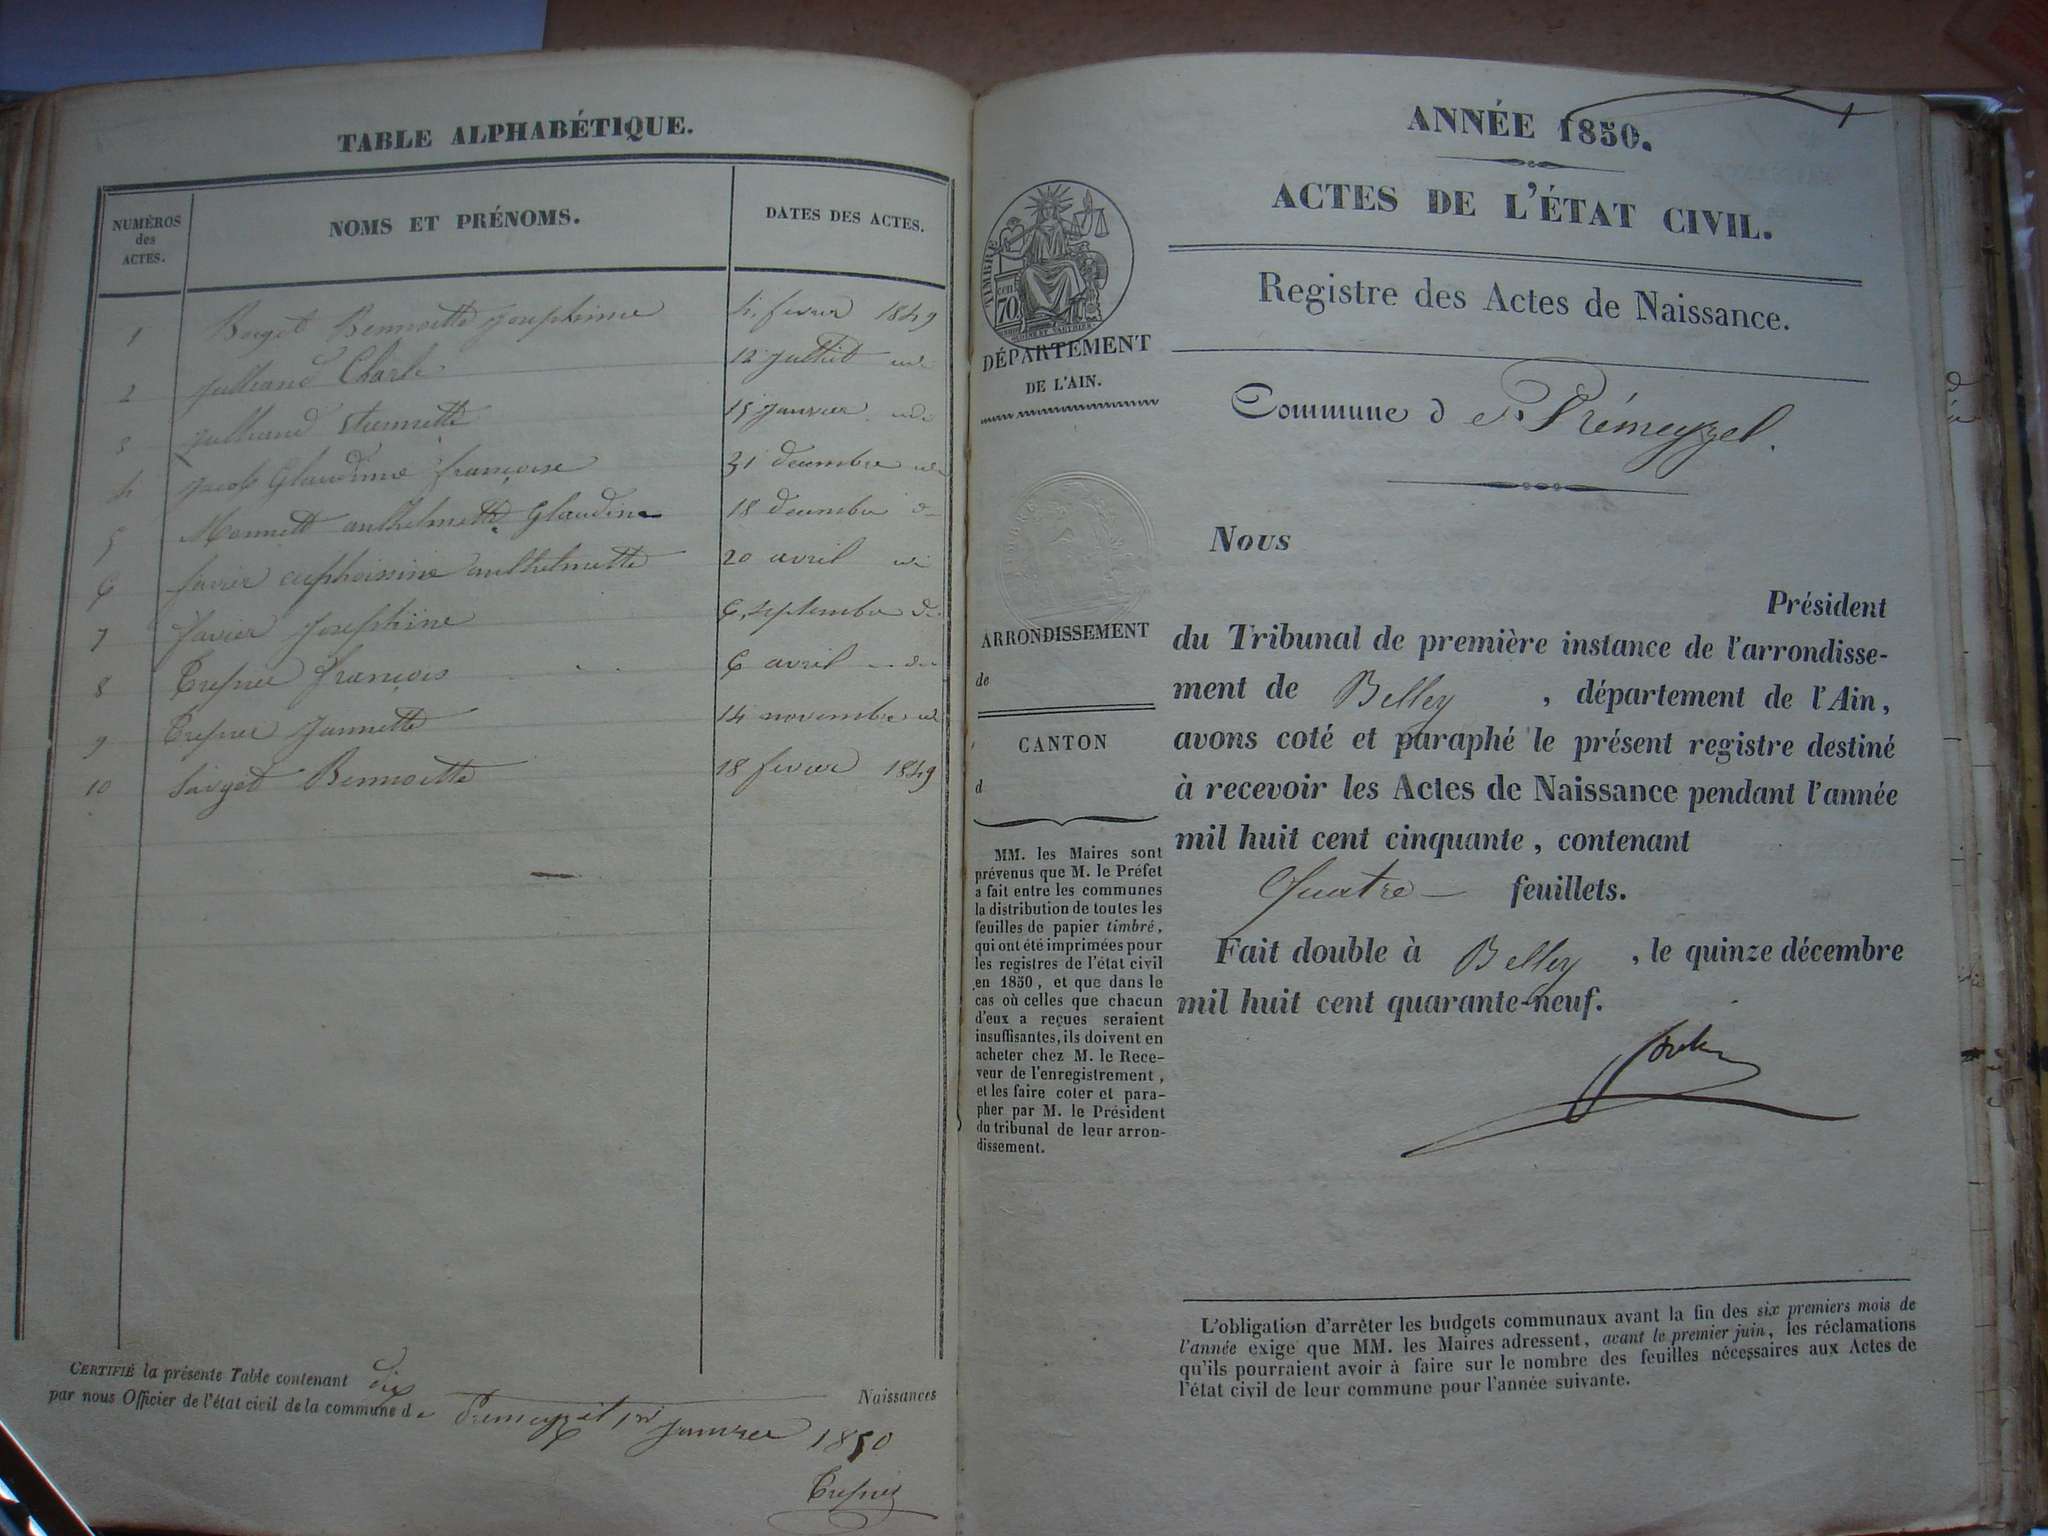 TABLE ALPHABÉTIQUE.
NUMÈROS
des
ACTES.
NOMS ET PRÉNOMS.
DATES DES ACTES.
1 Bennoitte Josephinne 4 fevrier 1849
2 Julliand Charle 12 Juillet
3 Julliand Etiennette 15 Janvier
4 Jacob Glaudine françoise 31 decembre
5 Monnett anthelmette Glaudine 18 decembre
6 anthelmette 20 avril
7 Javier Josephine 6 septembre
8 françois 6 avril
9 Jannette 14 novembre
10 Bennoitte 18 fevrier 1849
CERTIFIÉ la présente Table contenant dix Naissances
par nous Officier de l'état civil de la commune de Premeyzel 1er Janvier 1850
ANNÉE 1850.
ACTES DE L'ÉTAT CIVIL.
Registre des Actes de Naissance.
TIMBRE
cen
70
DÉPARTEMENT
DE L'AIN.
Commune de Prémeyzel.
ARRONDISSEMENT
de
CANTON
d
MM. les Maires sont
prévenus que M. le Préfet
a fait entre les communes
la distribution de toutes les
feuilles de papier timbré,
qui ont été imprimées pour
les registres de l'état civil
en 1850, et que dans le
cas où celles que chacun
d'eux a reçues seraient
insuffisantes, ils doivent en
acheter chez M. le Rece-
veur de l'enregistrement,
et les faire coter et para-
pher par M. le Président
du tribunal de leur arron-
dissement.
Nous
Président
du Tribunal de première instance de l'arrondisse-
ment de Belley, département de l'Ain,
avons coté et paraphé le présent registre destiné
à recevoir les Actes de Naissance pendant l'année
mil huit cent cinquante, contenant
Quatre feuillets.
Fait double à Belley, le quinze décembre
mil huit cent quarante-neuf.
L'obligation d'arrêter les budgets communaux avant la fin des six premiers mois de
l'année exige que MM. les Maires adressent, avant le premier juin, les réclamations
qu'ils pourraient avoir à faire sur le nombre des feuilles nécessaires aux Actes de
l'état civil de leur commune pour l'année suivante.